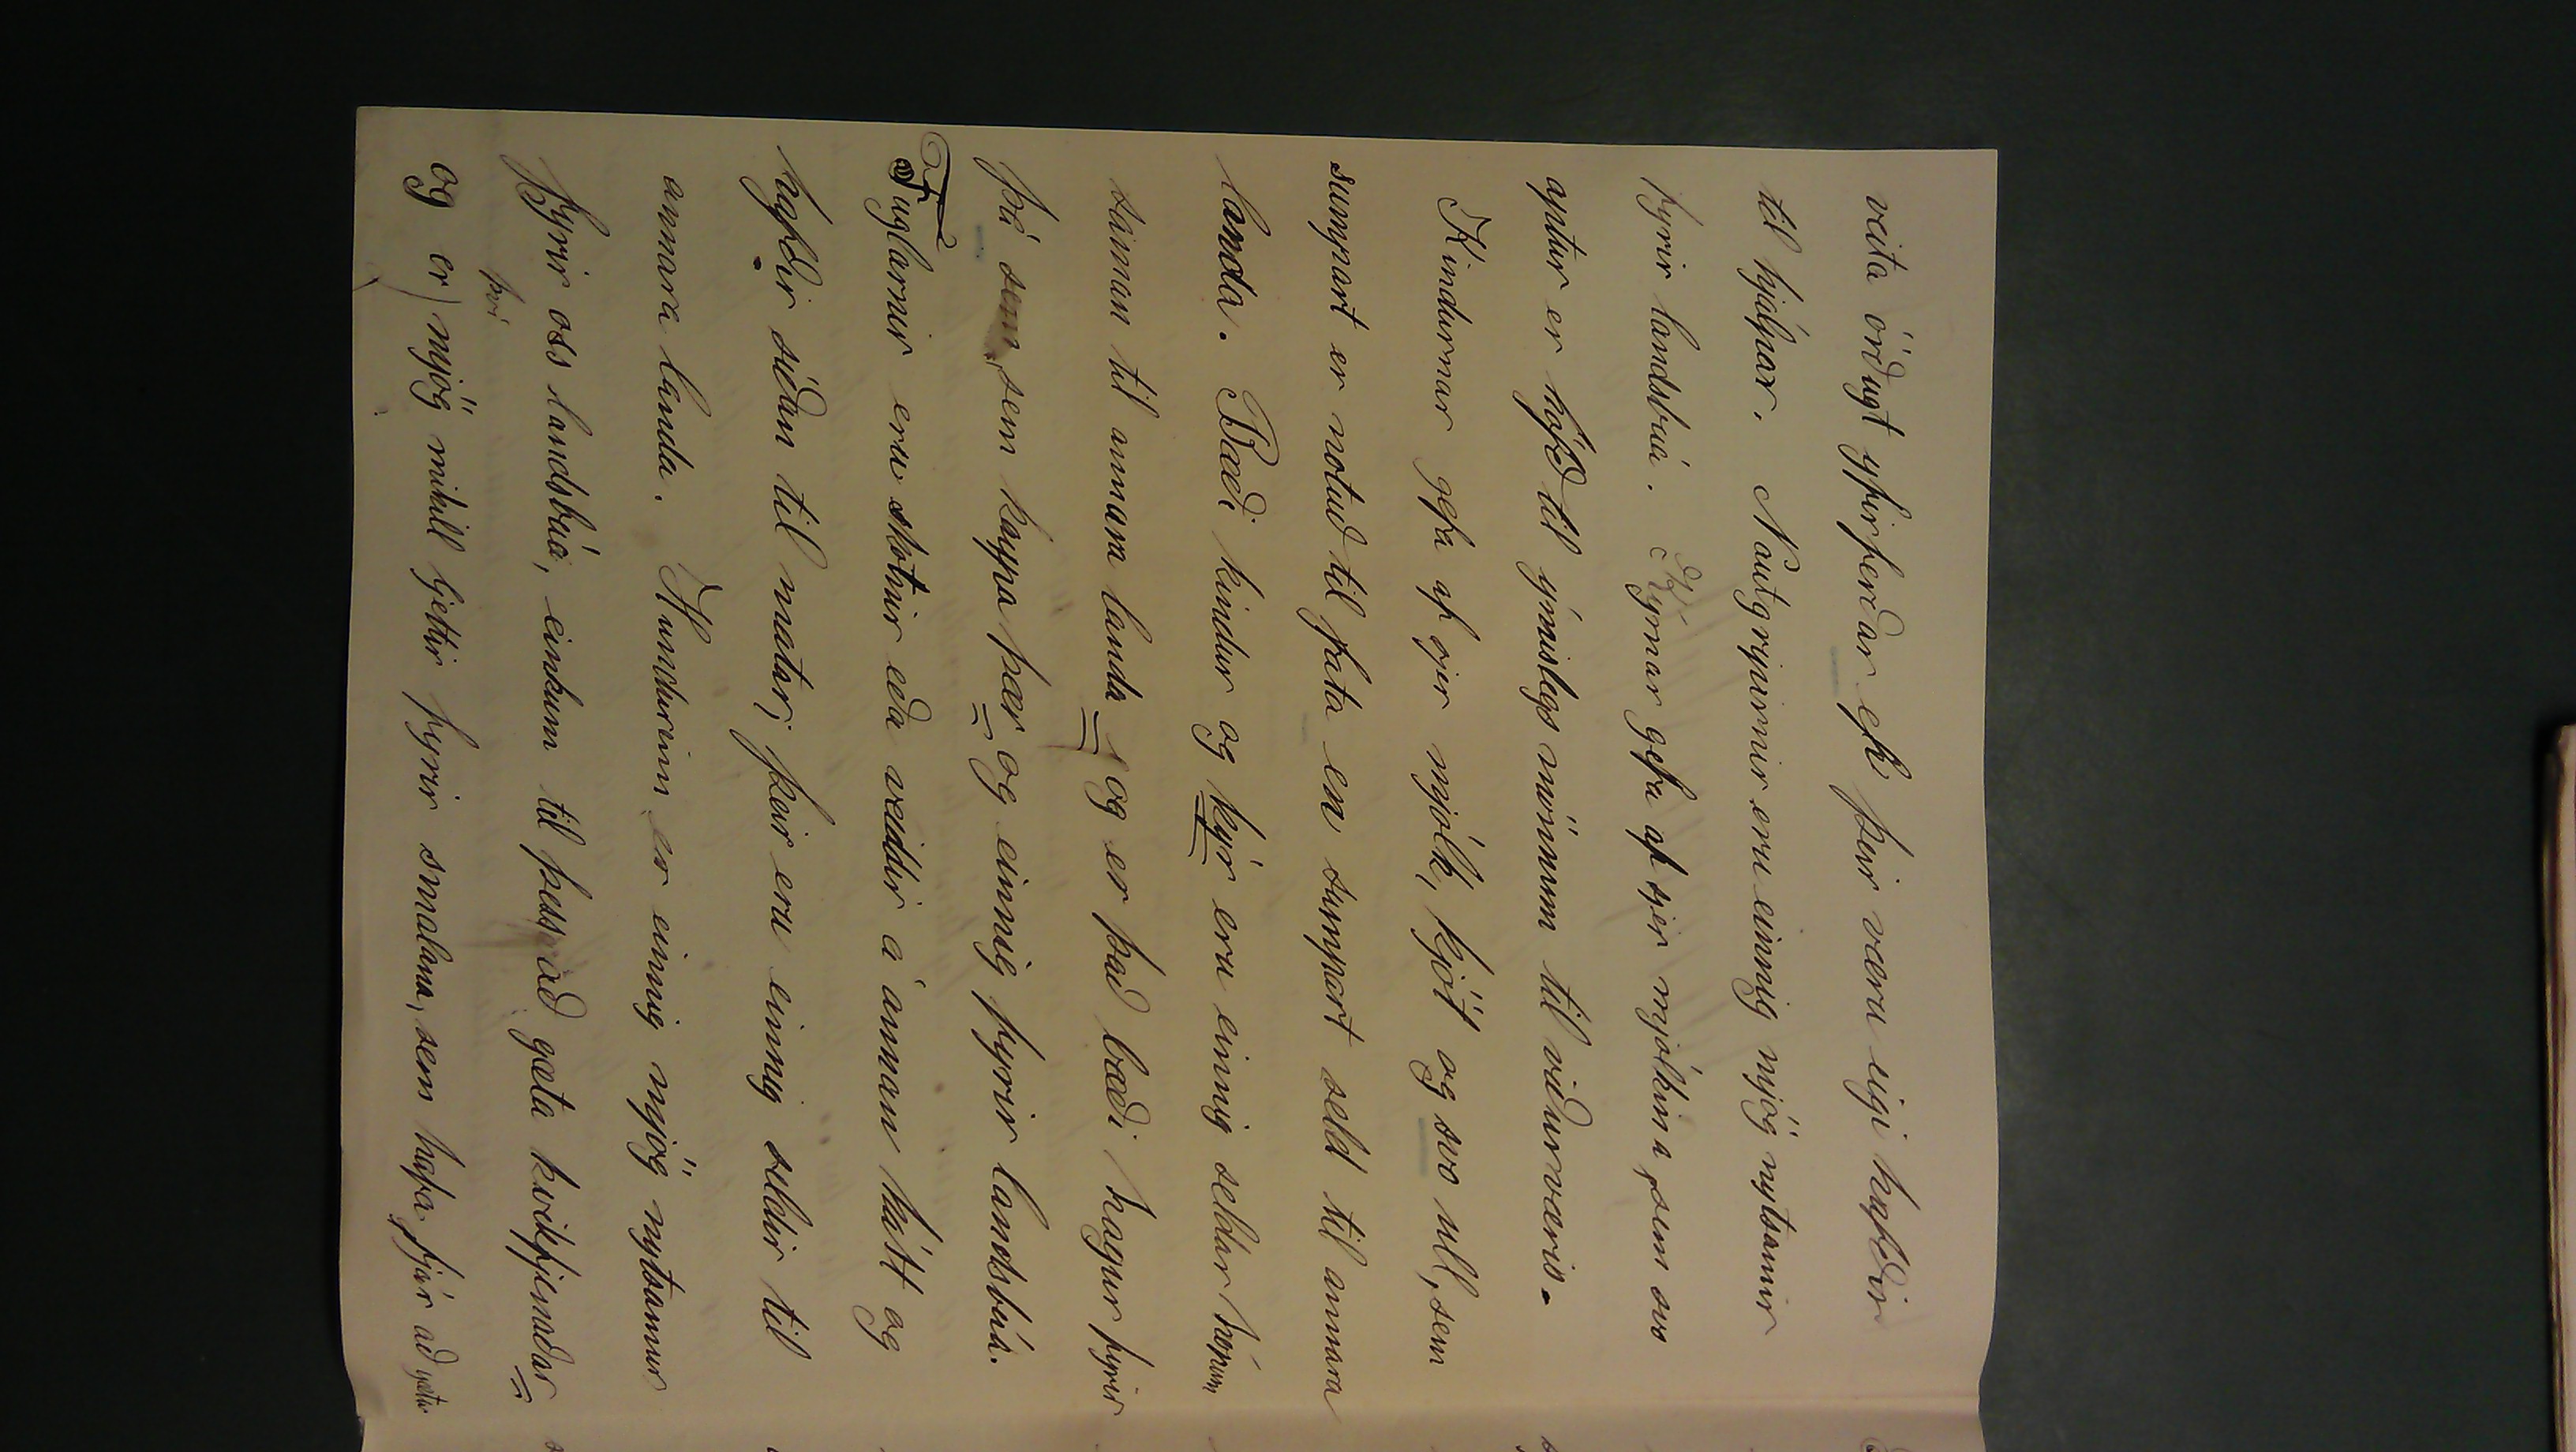 veita örðugt yfirferðar ef þeir væru eigi hafðir
til hjálpar. Nautgripirnir eru einnig mjög nytsamir
fyrir landsbúa. Kýrnar gefa af sjer mjólkina, sem svo
aptur er höfð til ýmislegs mönnum til viðurværis.
Kindurnar gefa af sjer mjólk, kjöt og svo ull, sem
sumpart er notuð til fata en sumpart seld til annara
landa. Bæði kindur og kýr eru einnig seldar hópum
saman til annara landa og er það bæði hagur fyrir
þá sem, sem kaupa þær og einnig fyrir landsbúa.
Fuglarnir eru skotnir eða veiddir á annan hátt og
hafðir síðan til matar; þeir eru einnig seldir til
annara landa. Hundurinn er einnig mjög nytsamur
fyrir oss landsbúa, einkum til þess að gæta kvikfjenaðar
því
og er mjög mikill ljettir fyrir smalana, sem hafa fjár að gæta